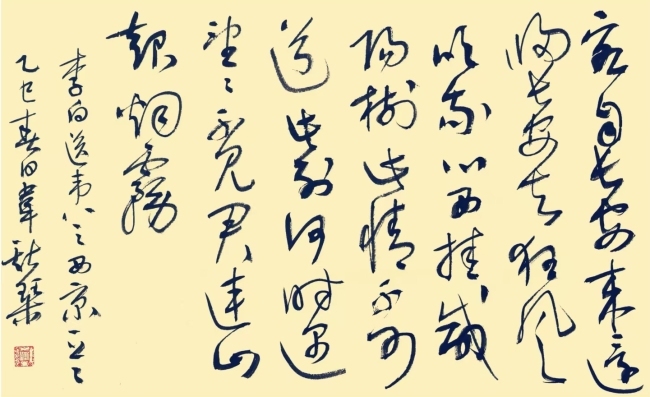 客自长安来還
归长安去狂风
吹我心西挂咸
阳树此情不可
道此别何时遇
望々不见君连山
起烟霧
李白送韦八之西京一
乙巳春日韋